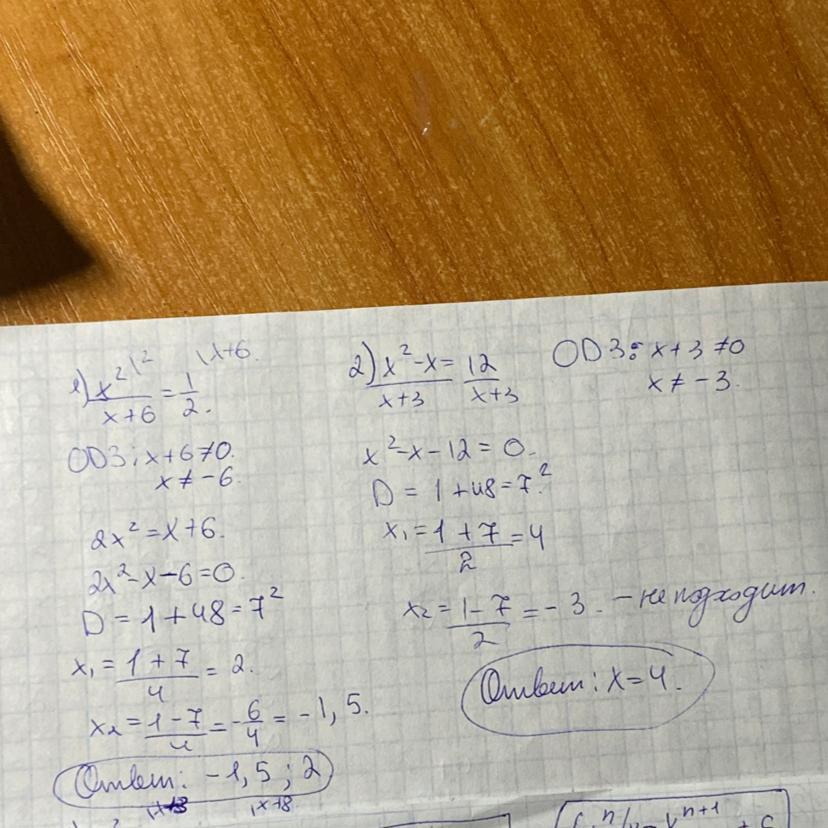 1) x²\² / x+6 = 1/2 \x+6.
ОДЗ: x+6≠0.
x≠-6.
2x²=x+6.
2x²-x-6=0.
D=1+48=7²
x₁=(1+7)/4=2.
x₂=(1-7)/4=-6/4=-1,5.
Ответ: -1,5; 2
2) (x²-x)/(x+3)=12/(x+3)
ОДЗ: x+3≠0
x≠-3.
x²-x-12=0.
D=1+48=7².
x₁=(1+7)/2=4
x₂=(1-7)/2=-3. -не подходит.
Ответ: x=4.
\x+8